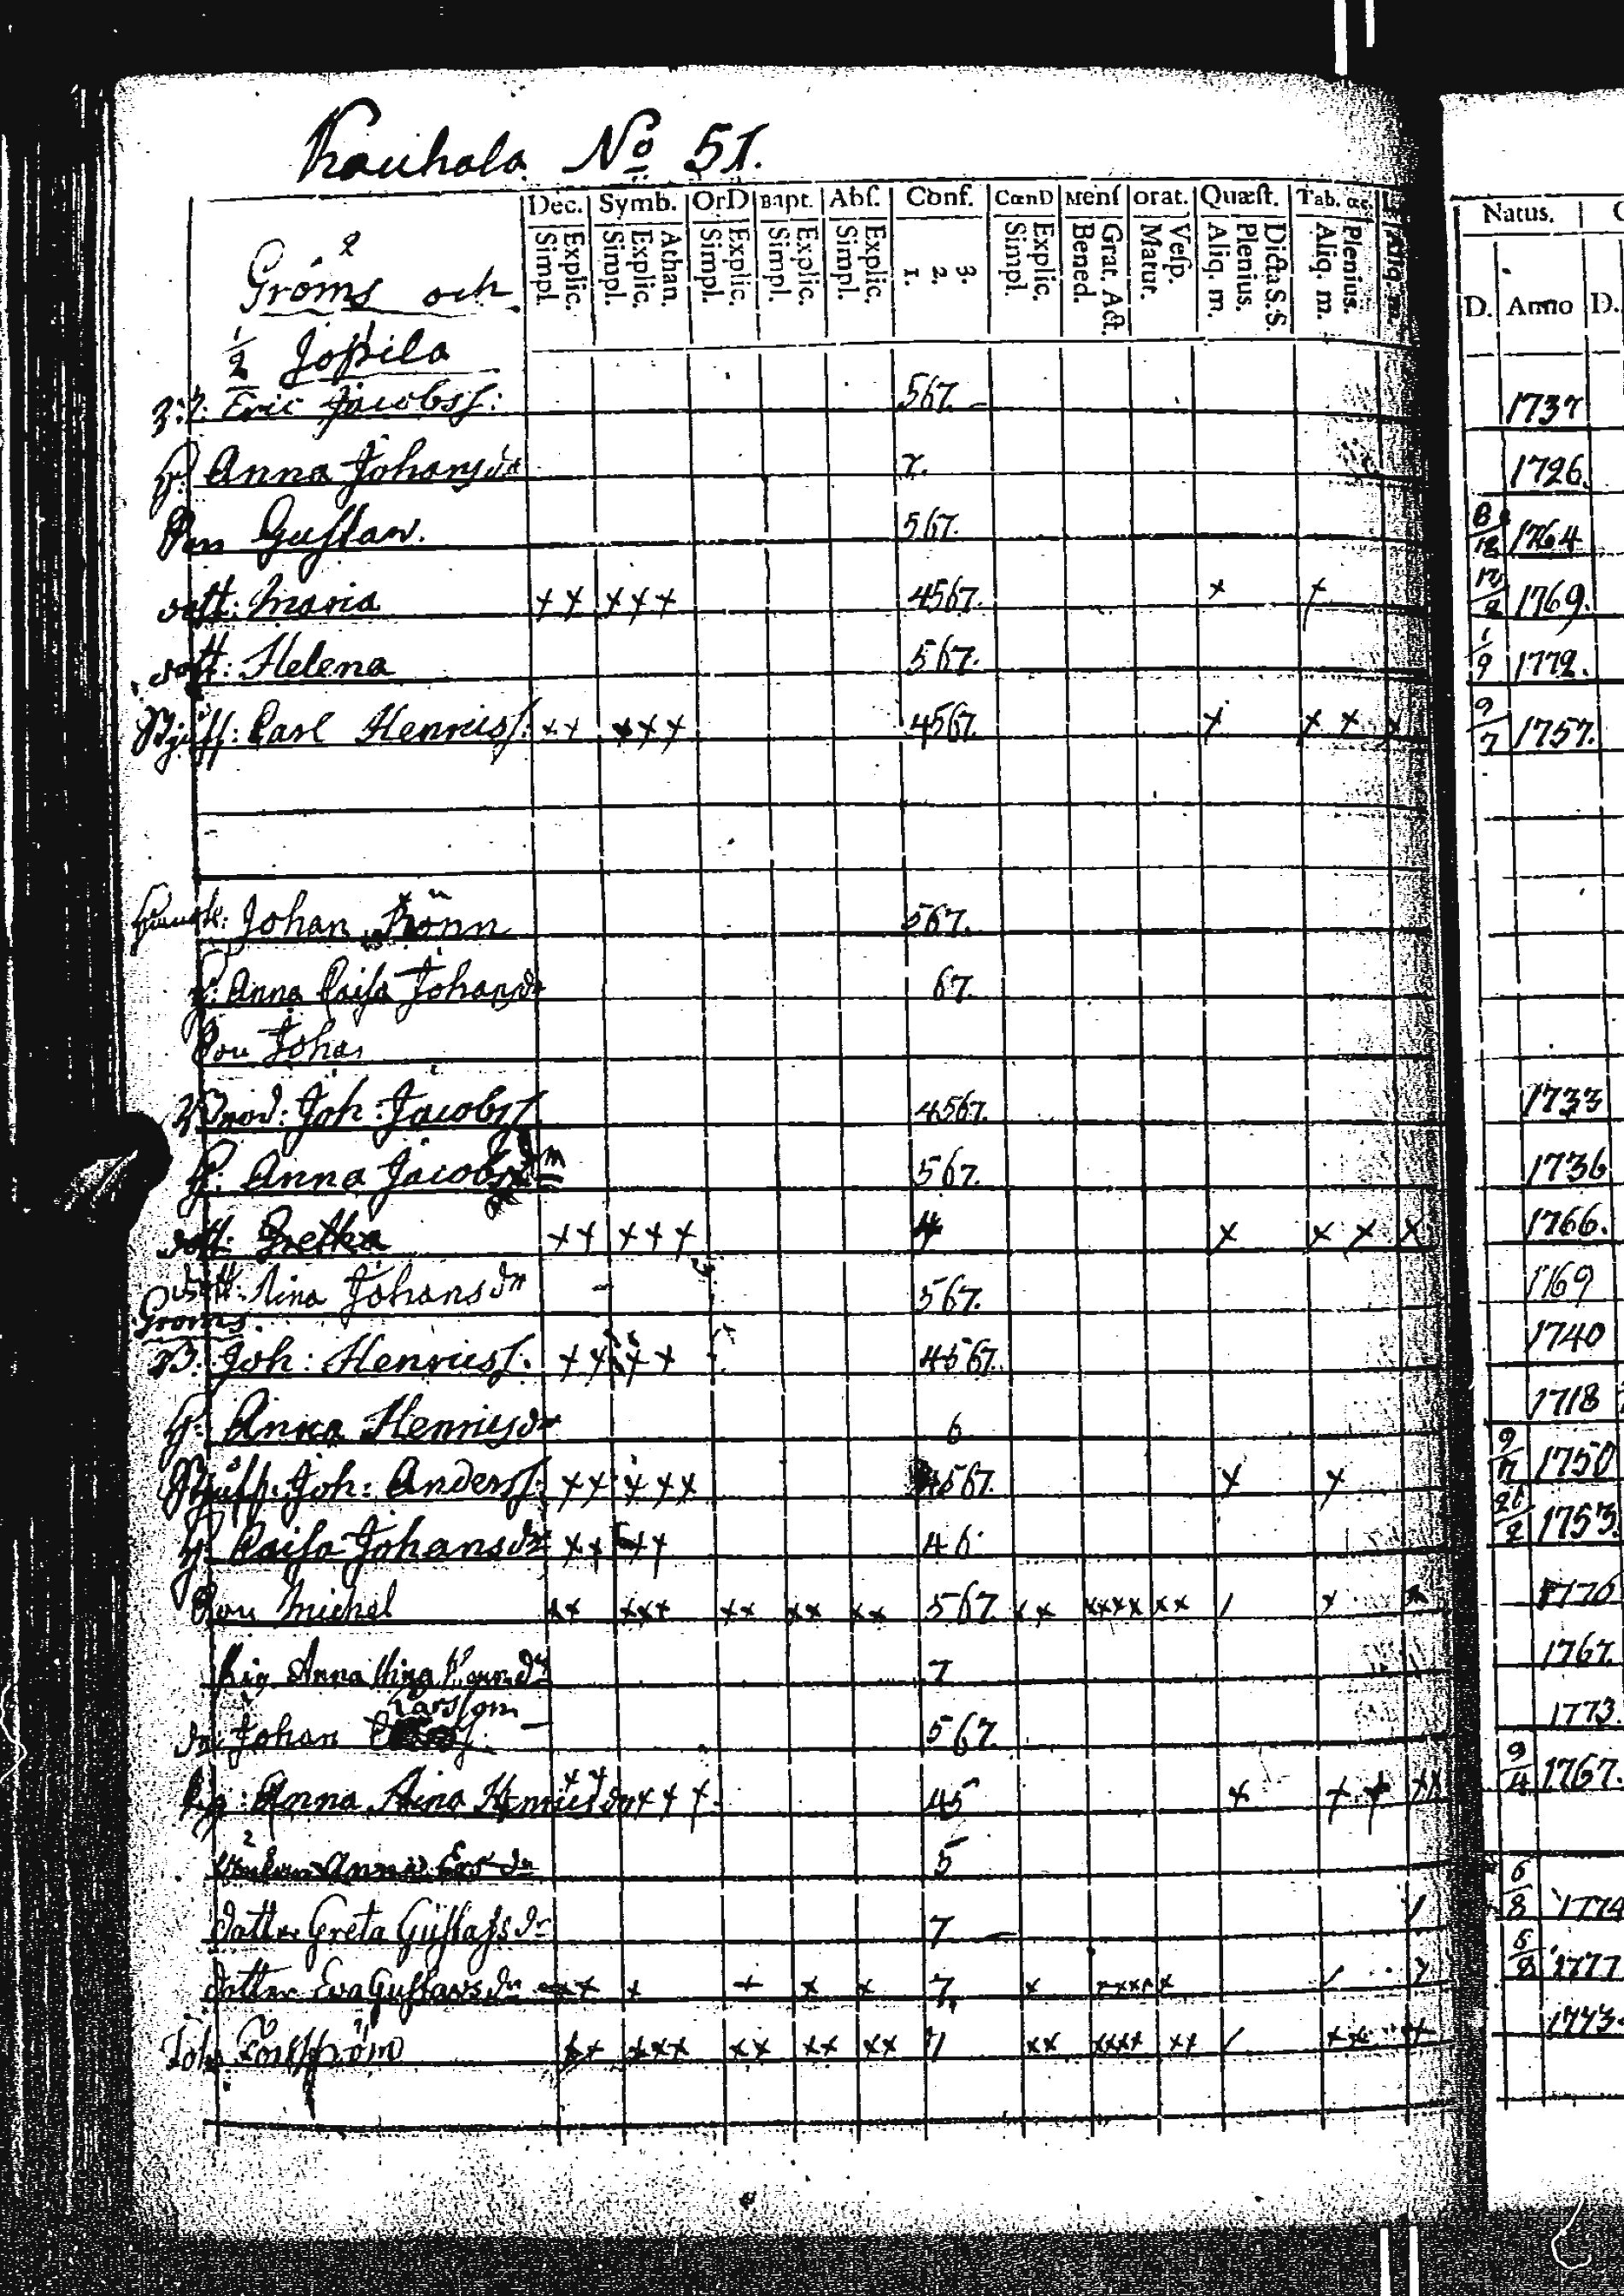 Kauhala No 51.
Dec. Symb. OrD Bapt. Abſ. Conf. CœnD Menſ orat. Quæſt. Tab. œc. Natus.
Explic. Simpl. Athan. Explic. Simpl. Explic. Simpl. Explic. Simpl. Explic. Simpl. 3. 2. 1. Explic. Simpl. Grat. Act. Bened. Veſp. Matut. Dicta S.S. Plenius. Aliq. m. Plenius. Aliq. m. Aliq. m. D. Anno D.
Gröms och
1/2 Joßila
Eric Jacobss: 567. 1737
H: Anna Johansdr 7. 1726.
Son Gustav. 567. 8/12 1764
dott: Maria ++ +++ 4567. + + 17/2 1769.
dott: Helena 567. 1/9 1772.
Carl Henricss: ++ +++ 4567. + + + + 9/7 1757.
Johan Rönn 567.
H: Anna Caisa Johansdr 67.
Son Johan
Brod: Joh: Jacobss 4567. 1733
H: Anna Jacobsdr 567. 1736
dott: Gretha ++ +++ 4 + + + + 1766.
dott: Stina Johansdr 567. 1769
Gröms.
B. Joh: Henricss: ++ ++ 4567. 1740
H: Anna Henricsdr 6 1718
Joh: Anderss: ++ +++ 4567. + + 9/7 1750
H: Caisa Johansdr ++ ++ 46 21/2 1753.
Son Michel ++ +++ ++ ++ ++ 567 ++ ++++ ++ / + + 1770
Pig. Anna Stina 7 1767.
Larsson
dr: Johan 567. 1773.
Pig: Anna Stina Henricsdr ++ +++ 45 + + + ++ 9/4 1767.
Anna Ersdr 5
Datter Greta Gustafsdr 7 / 6/8 1774
dotter Eva Gustavsdr ++ + + + + 7 + ++++ + / + 5/8 1777
Joh. ++ +++ ++ ++ ++ 7 ++ ++++ ++ / ++ + 1773.